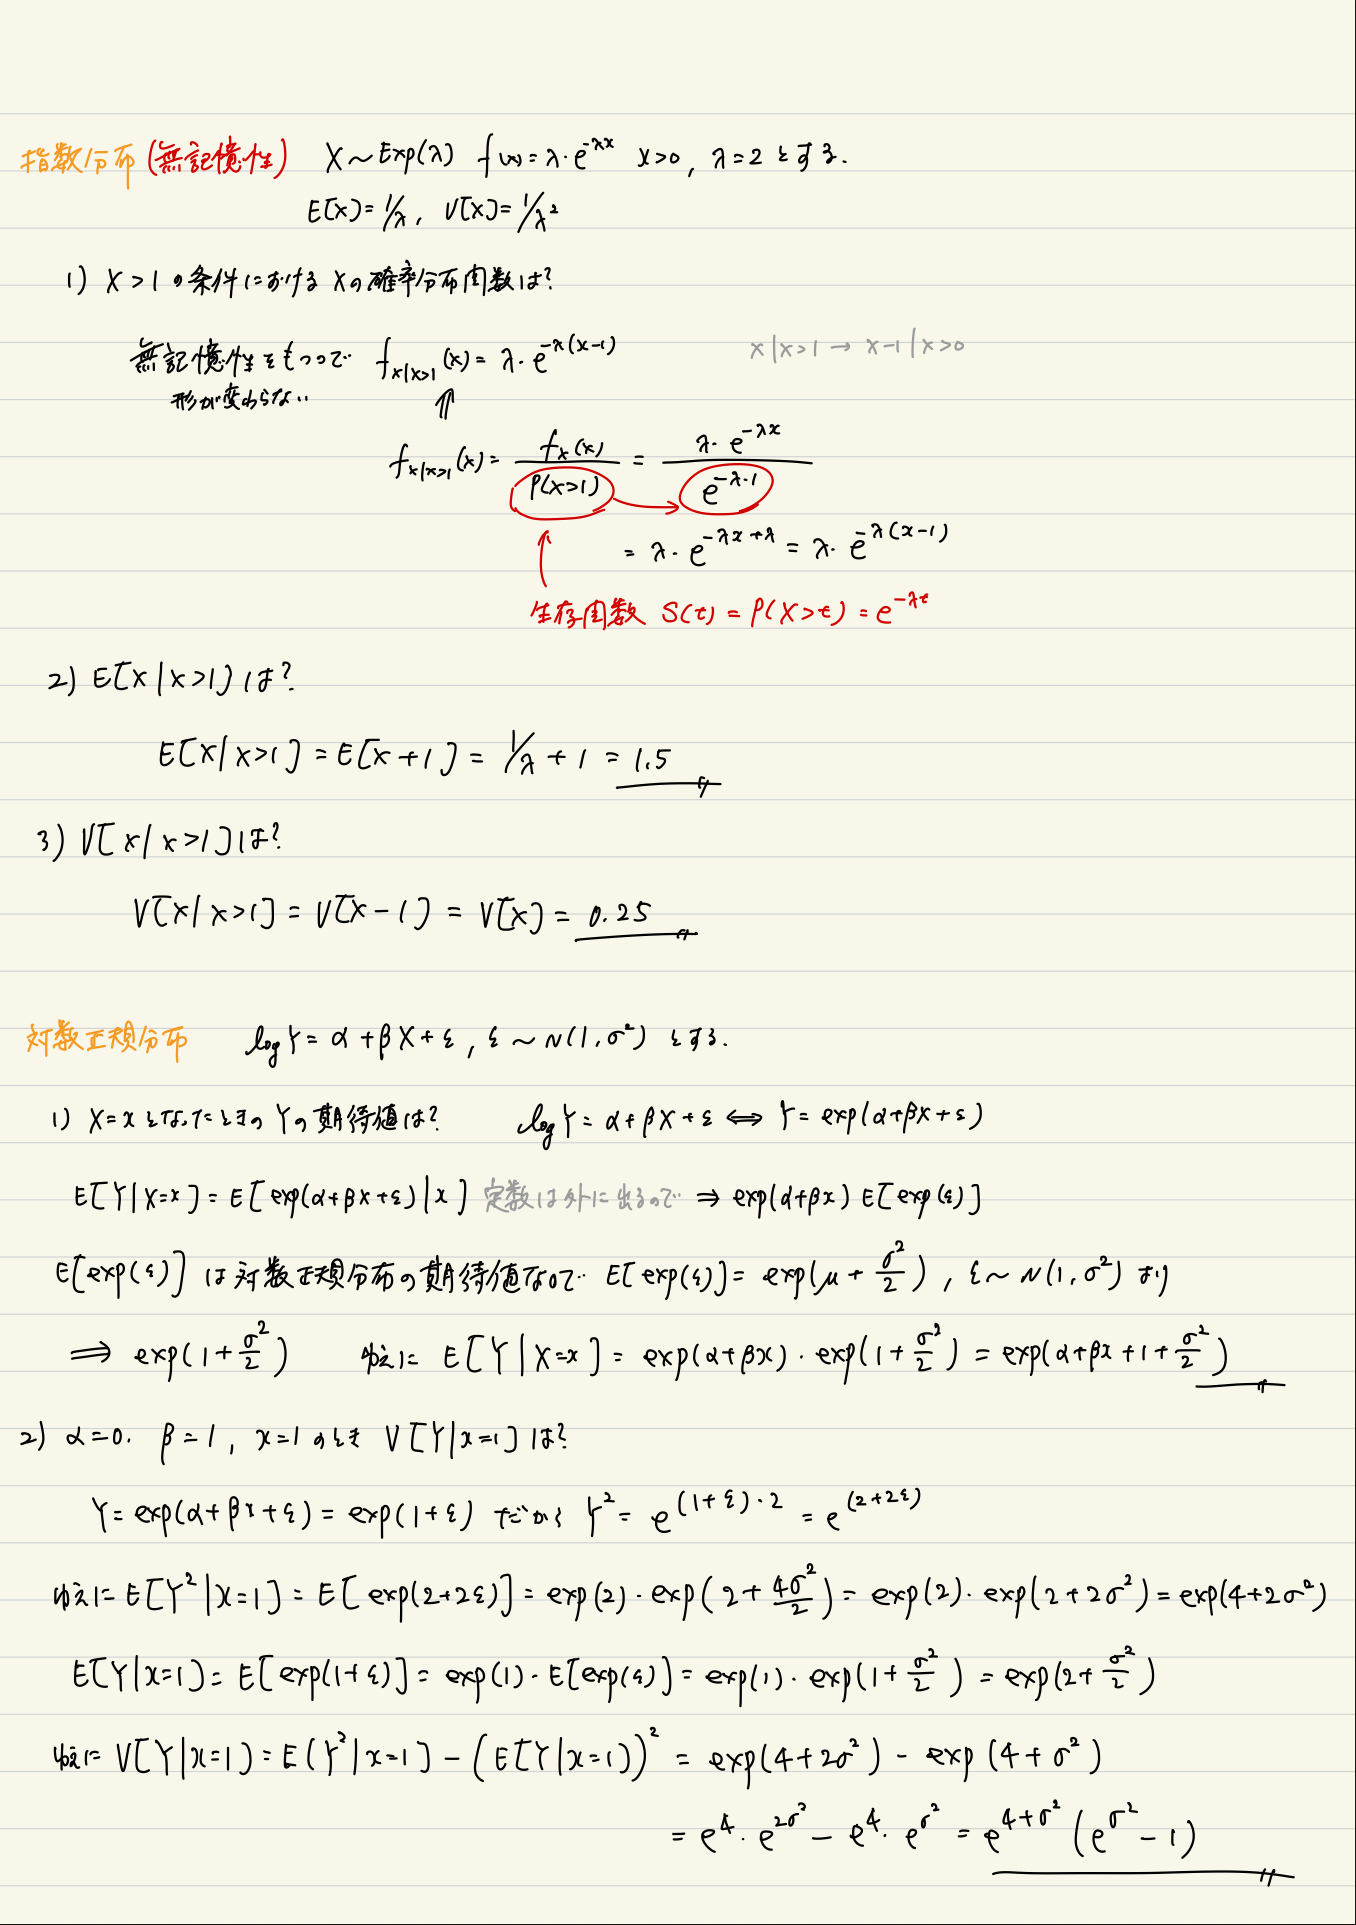 指数分布 (無記憶性) X～Exp(λ) f(x)=λ・e^{-λx} x>0, λ=2とする.
E[X]=1/λ, V[X]=1/λ²
1) X>1の条件における Xの確率分布関数は?
無記憶性をもつので f_{X|X>1}(x)=λ・e^{-λ(x-1)} x|x>1 → x-1|x>0
形が変わらない ⇑
f_{X|X>1}(x)= f_X(x)/P(X>1) = λ・e^{-λx}/e^{-λ・1}
= λ・e^{-λx+λ} = λ・e^{-λ(x-1)}
生存関数 S(t)=P(X>t)=e^{-λt}
2) E[X|X>1]は?
E[X|X>1]=E[X+1]=1/λ+1=1.5
3) V[X|X>1]は?
V[X|X>1]=V[X-1]=V[X]=0.25
対数正規分布 log Y=α+βX+ε, ε～N(1,σ²) とする.
1) X=xとなったときの Yの期待値は? log Y=α+βX+ε ⟺ Y=exp(α+βX+ε)
E[Y|X=x]=E[exp(α+βX+ε)|x] 定数は外に出るので ⇒ exp(α+βx) E[exp(ε)]
E[exp(ε)] は対数正規分布の期待値なので E[exp(ε)]=exp(μ+σ²/2), ε～N(1,σ²) より
⟹ exp(1+σ²/2) ゆえに E[Y|X=x]=exp(α+βx)・exp(1+σ²/2)=exp(α+βx+1+σ²/2)
2) α=0. β=1, x=1のとき V[Y|x=1]は?
Y=exp(α+βx+ε)=exp(1+ε) だから Y²=e^{(1+ε)・2}=e^{(2+2ε)}
ゆえに E[Y²|x=1]=E[exp(2+2ε)]=exp(2)・exp(2+4σ²/2)=exp(2)・exp(2+2σ²)=exp(4+2σ²)
E[Y|x=1]=E[exp(1+ε)]=exp(1)・E[exp(ε)]=exp(1)・exp(1+σ²/2)=exp(2+σ²/2)
ゆえに V[Y|x=1]=E(Y²|x=1]-(E[Y|x=1))²=exp(4+2σ²)-exp(4+σ²)
=e⁴・e^{2σ²}-e⁴・e^{σ²}=e^{4+σ²}(e^{σ²}-1)